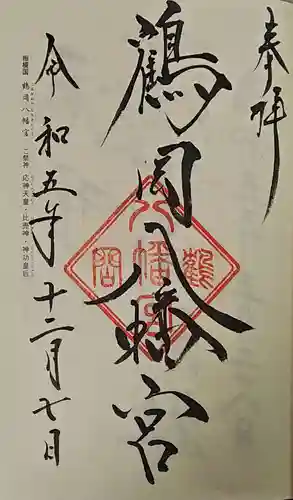 奉拝
鶴岡八幡宮
八
鶴 幡 岡
宮
令和五年十二月七日
相模国 鶴岡八幡宮 ご祭神 応神天皇・比売神・神功皇后